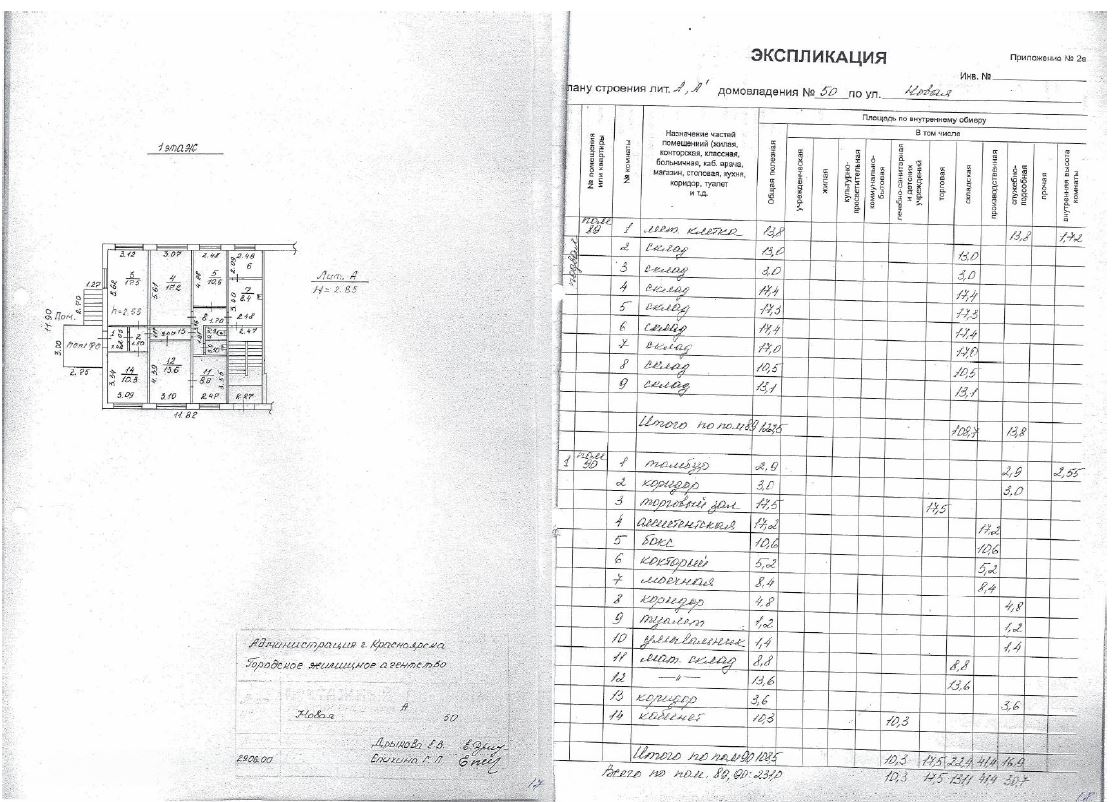 1 этаж
Лит. А
H = 2.85
3.12
3.07
2.48
2.48
6
3
17.5
4
17.2
5
10.6
7
8.4
5.62
5.61
h=2.55
1.27
2.70
11.90
3.00
Пом.
пом 90
2.95
8
1.70
2.18
2.47
14
10.3
12
13.6
11
8.8
3.34
4.39
3.56
3.09
3.10
2.47
11.82
Администрация г. Красноярска
Городское жилищное агентство
А
Новая
50
Дрыкова Е.В.
2906.00
Епихина Г.П.
17
ЭКСПЛИКАЦИЯ
Приложение № 2в
Инв. №
плану строения лит. А, А' домовладения № 50 по ул. Новая
№ помещения или квартиры
№ комнаты
Назначение частей
помещений (жилая,
конторская, классная,
больничная, каб. врача,
магазин, столовая, кухня,
коридор, туалет
и т.д.
Площадь по внутреннему обмеру
В том числе
Общая полезная
учрежденческая
жилая
культурно-просветительная
коммунально-бытовая
лечебно-санитарная и детских учреждений
торговая
складская
производственная
служебно-подсобная
прочая
внутренняя высота комнаты
подвал
пом 89 1 лест. клетка 13,8 13,8 1,72
2 склад 13,0 13,0
3 склад 3,0 3,0
4 склад 17,4 17,4
5 склад 17,3 17,3
6 склад 17,4 17,4
7 склад 17,0 17,0
8 склад 10,5 10,5
9 склад 13,1 13,1
Итого по пом 89 122,5 108,7 13,8
1 пом 90 1 тамбур 2,9 2,9 2,55
2 коридор 3,0 3,0
3 торговый зал 17,5 17,5
4 ассистентская 17,2 17,2
5 бокс 10,6 10,6
6 кокторый 5,2 5,2
7 моечная 8,4 8,4
8 коридор 4,8 4,8
9 туалет 1,2 1,2
10 умывальник 1,4 1,4
11 мат. склад 8,8 8,8
12 —"— 13,6 13,6
13 коридор 3,6 3,6
14 кабинет 10,3 10,3
Итого по пом 90 108,5 10,3 17,5 22,4 41,4 16,9
Всего по пом. 89, 90: 231,0 10,3 17,5 131,1 41,4 30,7
18